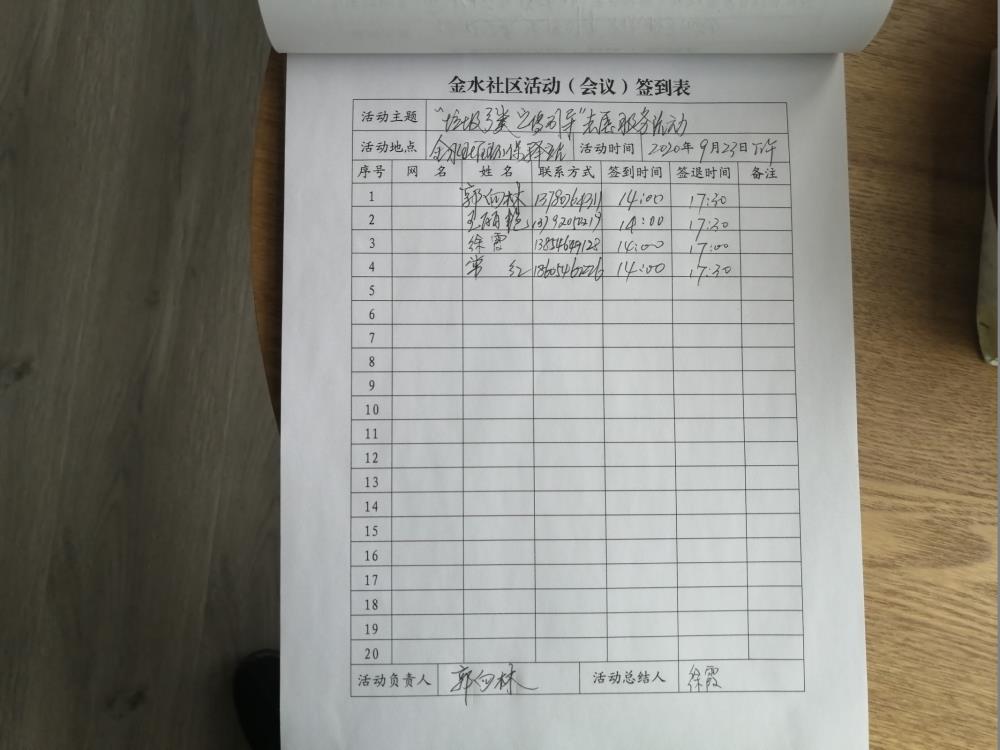 金水社区活动（会议）签到表
活动主题 “垃圾分类宣传引导”志愿服务活动
活动地点 金水 活动时间 2020年9月23日下午
序号 网名 姓名 联系方式 签到时间 签退时间 备注
1 郭向林 14:00 17:30
2 14:00 17:30
3 徐霞 14:00 17:00
4 常红 18605462226 14:00 17:30
5
6
7
8
9
10
11
12
13
14
15
16
17
18
19
20
活动负责人 郭向林 活动总结人 徐霞